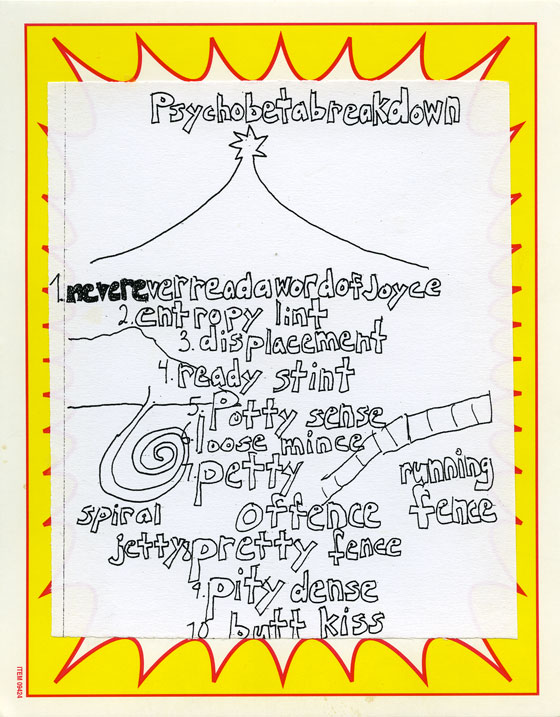 Psychobetabreakdown
1. neverever​readawordofJoyce
2. entropy lint
3. displacement
4. ready stint
5. Potty sense
6. loose mince
7. petty
offence
running
fence
spiral
jetty
8. pretty fence
9. pity dense
10. butt kiss
ITEM 09424